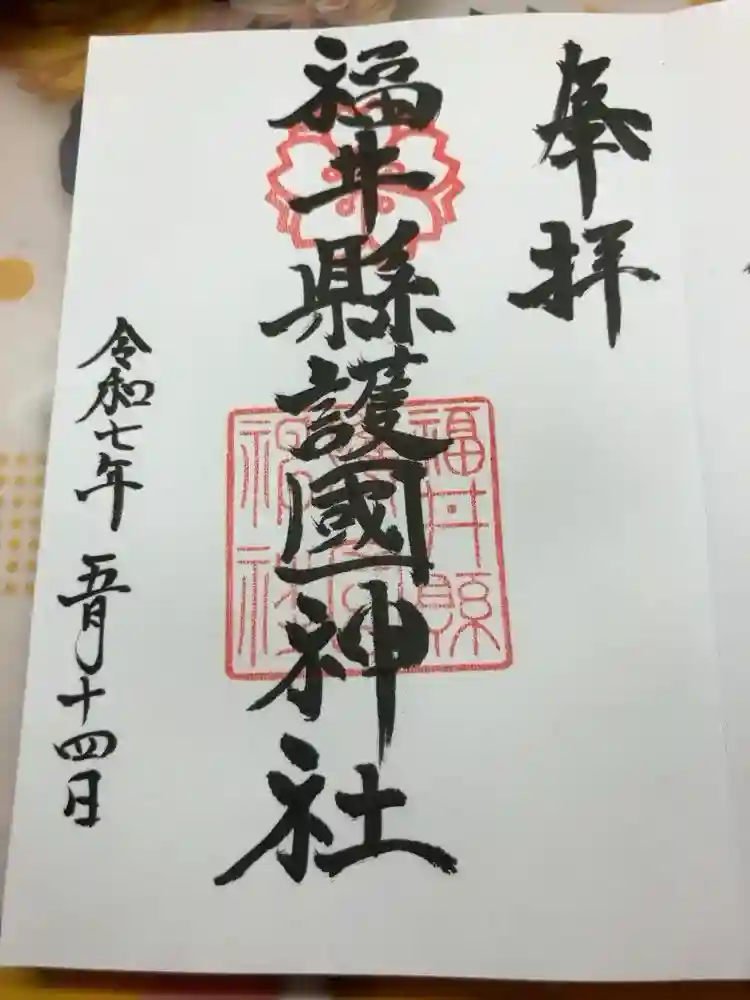 奉拝
福井縣護國神社
福井縣
神社
令和七年 五月十四日